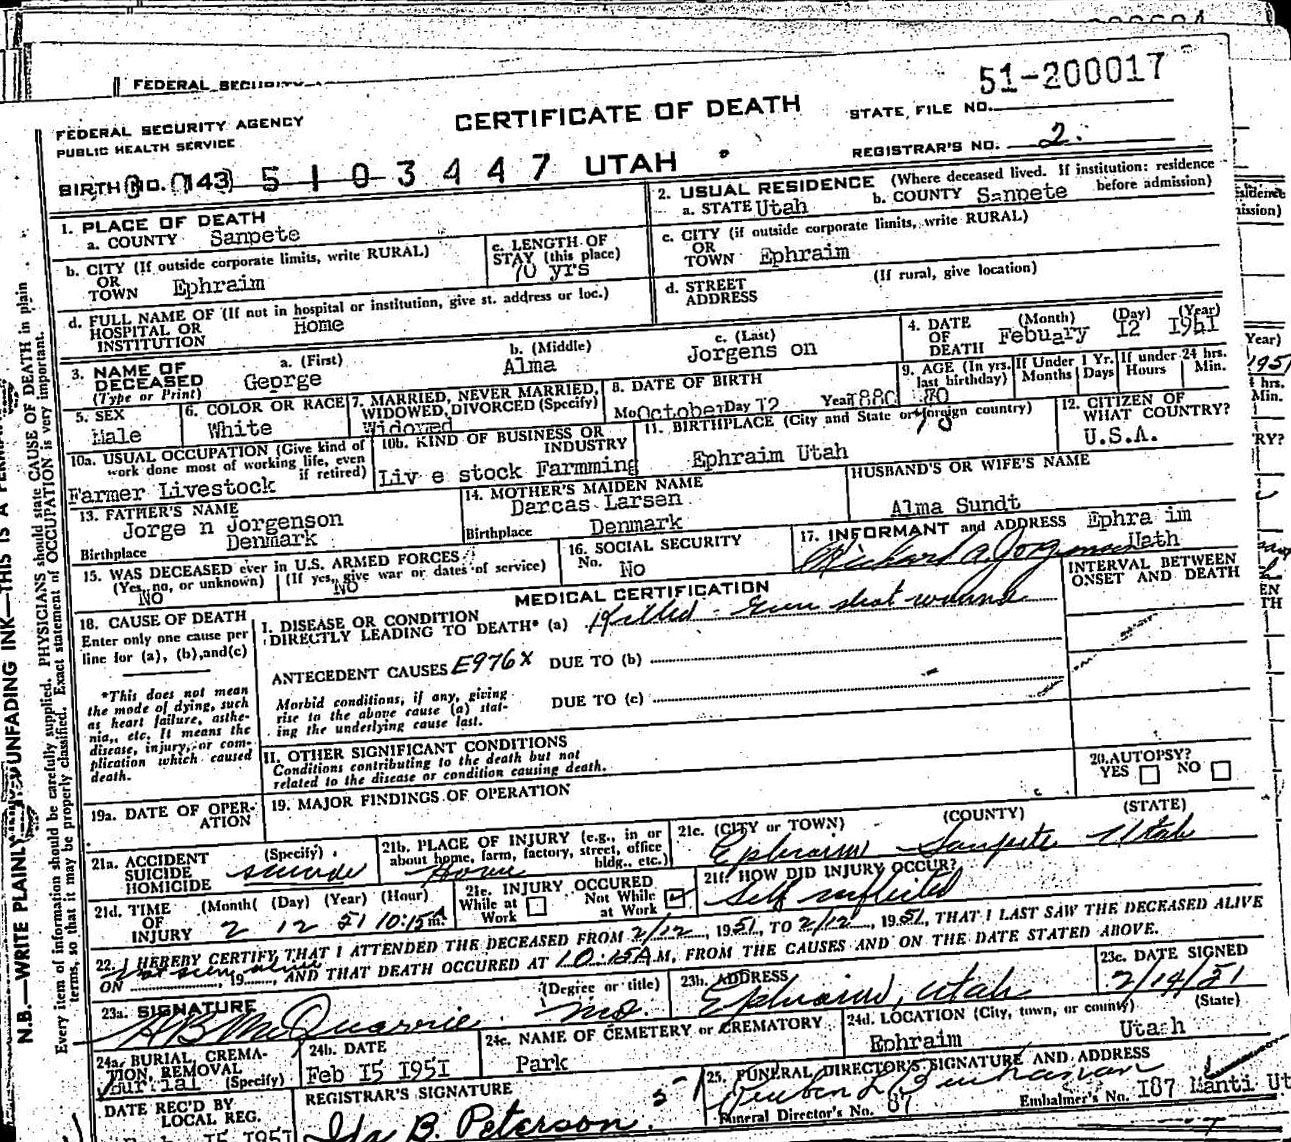 FEDERAL SECURITY
51-200017
FEDERAL SECURITY AGENCY
PUBLIC HEALTH SERVICE
CERTIFICATE OF DEATH
STATE FILE NO.
BIRTH NO. 143 5 1 0 3 4 4 7 UTAH
REGISTRAR'S NO. 2.
1. PLACE OF DEATH
a. COUNTY Sanpete
2. USUAL RESIDENCE (Where deceased lived. If institution: residence before admission)
a. STATE Utah b. COUNTY Sanpete
b. CITY (If outside corporate limits, write RURAL)
OR
TOWN Ephraim
c. LENGTH OF
STAY (this place)
70 yrs
c. CITY (if outside corporate limits, write RURAL)
OR
TOWN Ephraim
d. FULL NAME OF (If not in hospital or institution, give st. address or loc.)
HOSPITAL OR
INSTITUTION Home
d. STREET
ADDRESS
(If rural, give location)
3. NAME OF
DECEASED
(Type or Print)
a. (First)
George
b. (Middle)
Alma
c. (Last)
Jorgens on
4. DATE
OF
DEATH
(Month) (Day) (Year)
Febuary 12 1951
5. SEX
Male
6. COLOR OR RACE
White
7. MARRIED, NEVER MARRIED,
WIDOWED, DIVORCED (Specify)
Widowed
8. DATE OF BIRTH
Mo October Day 12 Year 1880
9. AGE (In yrs.
last birthday)
70
If Under 1 Yr.
Months Days
If under 24 hrs.
Hours Min.
10a. USUAL OCCUPATION (Give kind of
work done most of working life, even
if retired)
Farmer Livestock
10b. KIND OF BUSINESS OR
INDUSTRY
Liv e stock Farmming
11. BIRTHPLACE (City and State or foreign country)
70
Ephraim Utah
12. CITIZEN OF
WHAT COUNTRY?
U.S.A.
13. FATHER'S NAME
Jorge n Jorgenson
Birthplace Denmark
14. MOTHER'S MAIDEN NAME
Darcas Larsen
Birthplace Denmark
HUSBAND'S OR WIFE'S NAME
Alma Sundt
15. WAS DECEASED ever in U.S. ARMED FORCES?
(Yes, no, or unknown) (If yes, give war or dates of service)
No No
16. SOCIAL SECURITY
No. No
17. INFORMANT and ADDRESS Ephra im
Richard A. Jorgenson Utah
MEDICAL CERTIFICATION
INTERVAL BETWEEN
ONSET AND DEATH
18. CAUSE OF DEATH
Enter only one cause per
line for (a), (b), and (c)
I. DISEASE OR CONDITION
DIRECTLY LEADING TO DEATH* (a) Killed - Gun shot wound
ANTECEDENT CAUSES E976X DUE TO (b)
*This does not mean
the mode of dying, such
as heart failure, asthe-
nia, etc. It means the
disease, injury, or com-
plication which caused
death.
Morbid conditions, if any, giving
rise to the above cause (a) stat-
ing the underlying cause last.
DUE TO (c)
II. OTHER SIGNIFICANT CONDITIONS
Conditions contributing to the death but not
related to the disease or condition causing death.
20. AUTOPSY?
YES NO
19a. DATE OF OPER-
ATION
19. MAJOR FINDINGS OF OPERATION
21a. ACCIDENT
SUICIDE
HOMICIDE
(Specify)
Suicide
21b. PLACE OF INJURY (e.g., in or
about home, farm, factory, street, office
bldg., etc.)
Home
21c. (CITY or TOWN) (COUNTY) (STATE)
Ephraim Sanpete Utah
21d. TIME
OF
INJURY
(Month) (Day) (Year) (Hour)
2 12 51 10:15 m.
21e. INJURY OCCURED
While at Work
Not While at Work
21f. HOW DID INJURY OCCUR?
Self inflicted
22. I HEREBY CERTIFY THAT I ATTENDED THE DECEASED FROM 2/12, 1951, TO 2/12, 1951, THAT I LAST SAW THE DECEASED ALIVE
ON not seen alive, 19, AND THAT DEATH OCCURED AT 10:15 A.M, FROM THE CAUSES AND ON THE DATE STATED ABOVE.
23a. SIGNATURE (Degree or title)
A B McQuarrie MD.
23b. ADDRESS
Ephraim, Utah
23c. DATE SIGNED
2/14/51
24a. BURIAL, CREMA-
TION, REMOVAL
Burial (Specify)
24b. DATE
Feb 15 1951
24c. NAME OF CEMETERY or CREMATORY
Park
24d. LOCATION (City, town, or county) (State)
Ephraim Utach
DATE REC'D BY
LOCAL REG.
15 1951
REGISTRAR'S SIGNATURE
Ida B. Peterson
25. FUNERAL DIRECTOR'S SIGNATURE AND ADDRESS
Funeral Director's No. 87
Embalmer's No. 187 Manti Ut
N.B.—WRITE PLAINLY UNFADING INK—THIS IS A
Every item of information should be carefully supplied. PHYSICIANS should state CAUSE OF DEATH in plain
terms, so that it may be properly classified. Exact statement of OCCUPATION is very important.